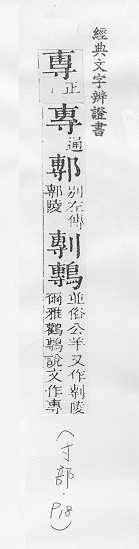 經典文字辨證書
專正專通鄟別左傳鄟陵剸鷒並俗公羊又作剸陵爾雅鸛鷒說文作專
(寸部.P18)